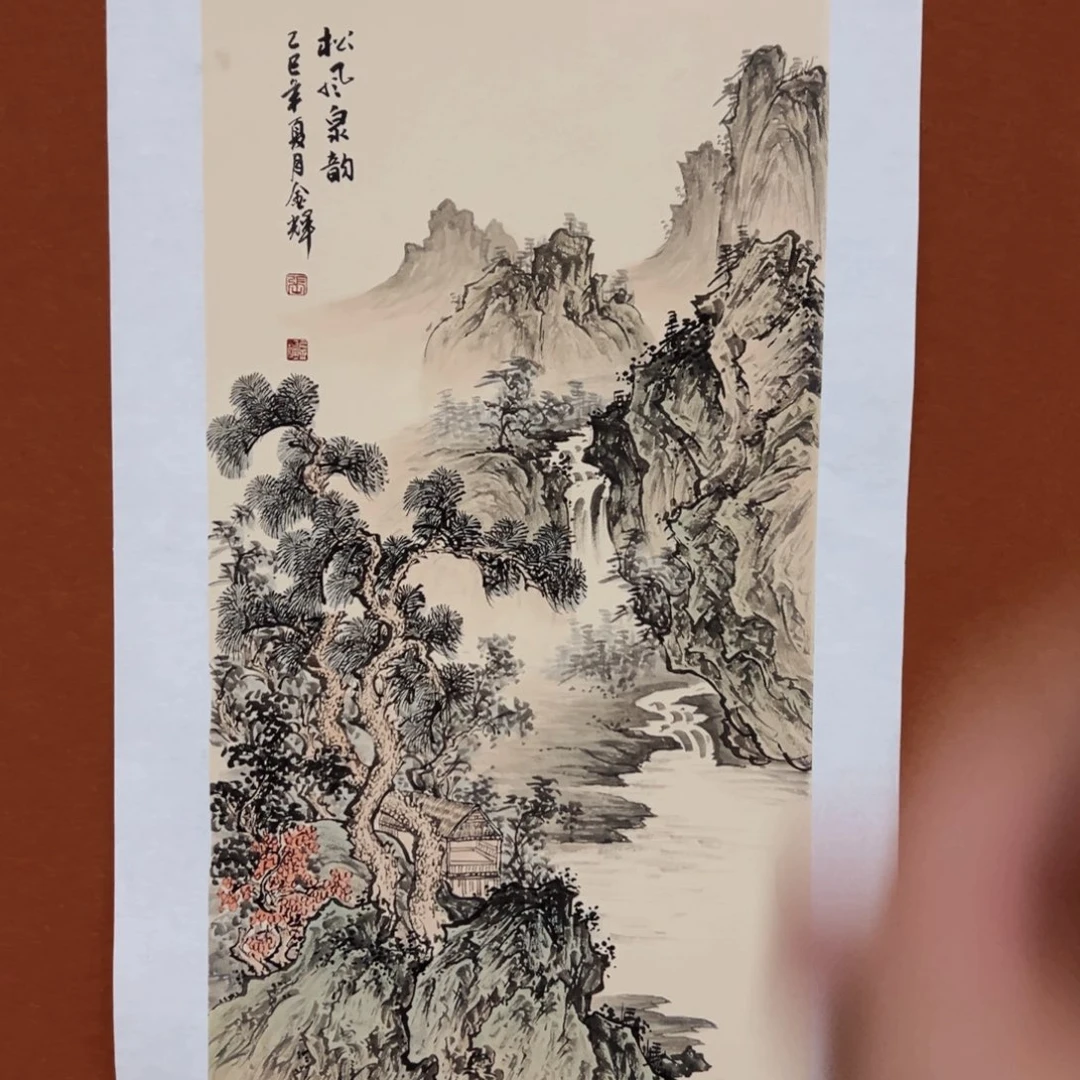 松风泉韵
乙巳年夏月金辉